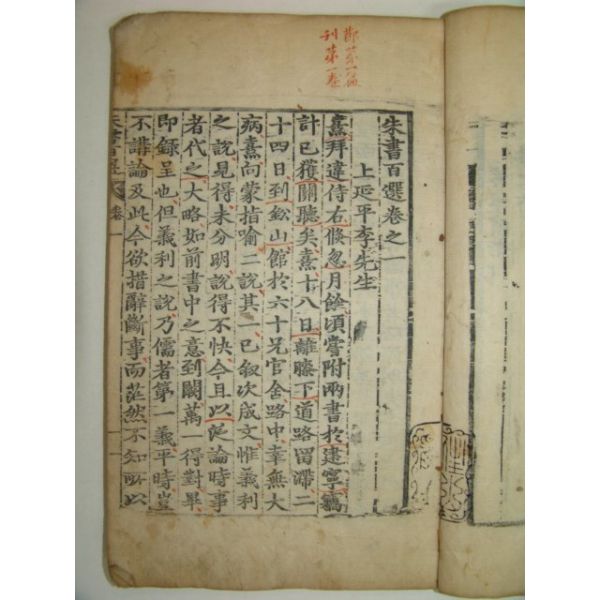 朱書百選卷之一
上延平李先生
熹拜違侍右倏忽月餘頃嘗附兩書於建寧竊
計已獲關聽矣熹十八日離膝下道路留滯二
十四日到鈆山館於六十兄官舍路中幸無大
病熹向蒙指喻二說其一已叙次成文惟義利
之說見得未分明說得不快今且以泛論時事
者代之大略如前書中之意到闕萬一得對畢
即錄呈也但義利之說乃儒者第一義平時豈
不講論及此今欲措辭斷事而茫然不知所以
朱書百選 卷一